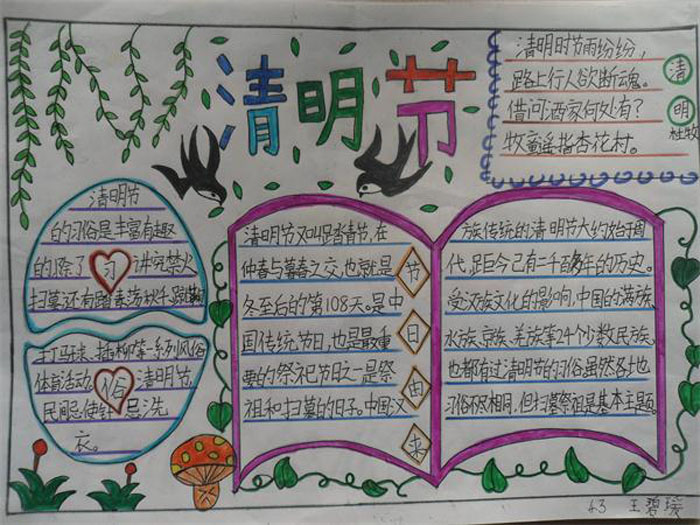 清明节
清明时节雨纷纷，
路上行人欲断魂。
借问酒家何处有？
牧童遥指杏花村。
清
明
杜牧
清明节
的习俗是丰富有趣
的，除了
习
讲究禁火
扫墓，还有踏青荡秋千、蹴鞠
打马球、插柳等一系列风俗
体育活动。
俗
清明节，
民间忌使针，忌洗
衣。
清明节又叫踏青节，在
仲春与暮春之交，也就是
冬至后的第108天。是中
国传统节日，也是最重
要的祭祀节日之一是祭
祖和扫墓的日子。中国汉
节
日
由
来
族传统的清明节大约始于周
代，距今已有二千百多年的历史。
受汉族文化的影响，中国的满族、
水族、京族、羌族等24个少数民族，
也都有过清明节的习俗。虽然各地
习俗不尽相同，但扫墓祭祖是基本主题。
6.3 王碧瑶